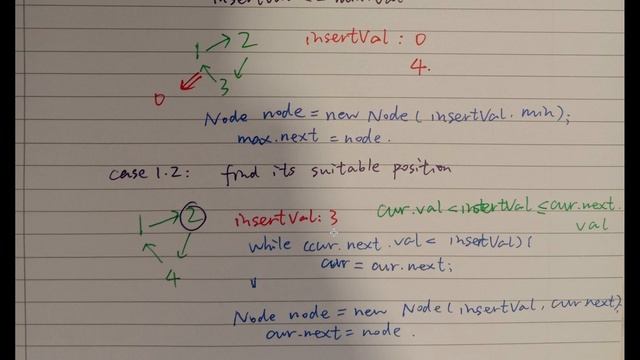 1 → 2
insertVal : 0
4.
3
0
Node node = new Node ( insertVal. min);
max.next = node.
case 1.2: find its suitable position
1 → 2
insertVal: 3
cur.val < insertVal ≤ cur.next.
val
while (cur.next.val < insertVal) {
4
cur = cur.next;
Node node = new Node ( insertVal, cur.next);
cur.next = node.